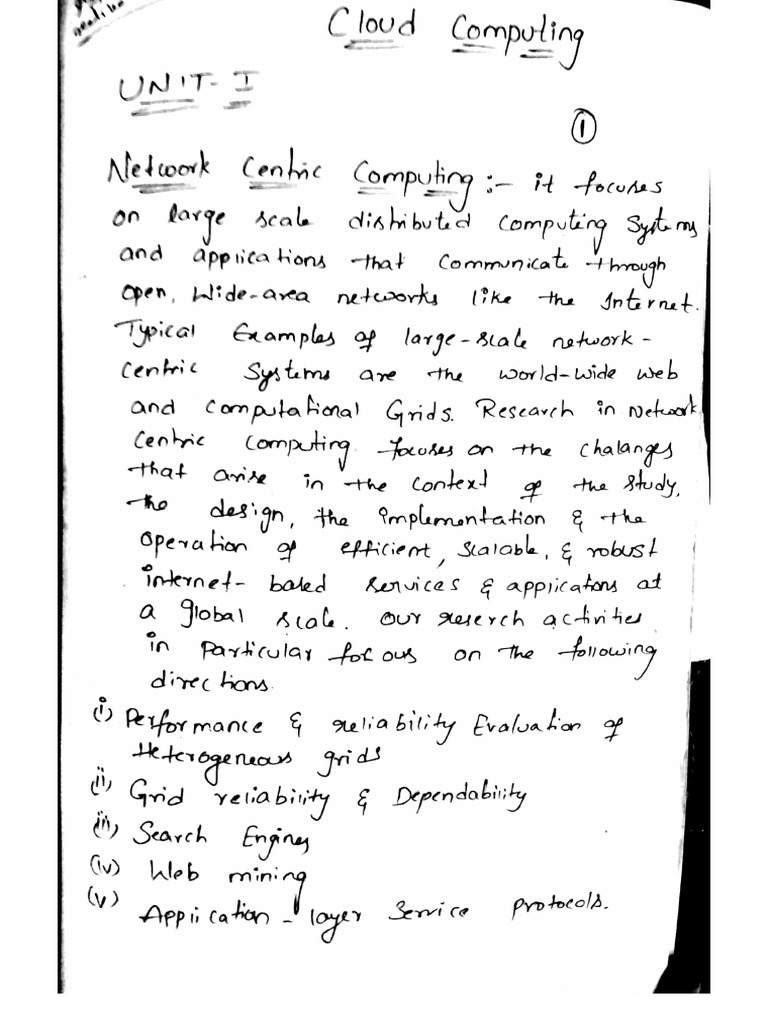 Cloud Computing
UNIT-I
1
Network Centric Computing:- it focuses
on large scale distributed Computing Systems
and applications that Communicate through
open, Wide-area networks like the Internet.
Typical Examples of large-scale network-
Centric Systems are the world-wide web
and Computational Grids. Research in Network
Centric Computing focuses on the Chalanges
that arise in the Context of the study,
the design, the implementation & the
operation of efficient, scalable, & robust
internet-based services & applications at
a global scale. Our reserch activities
in particular focous on the following
directions.
(i) Performance & reliability Evaluation of
Heterogeneous grids
(ii) Grid reliability & Dependability
(iii) Search Engines
(iv) Web mining
(v) Application-layer Service Protocols.